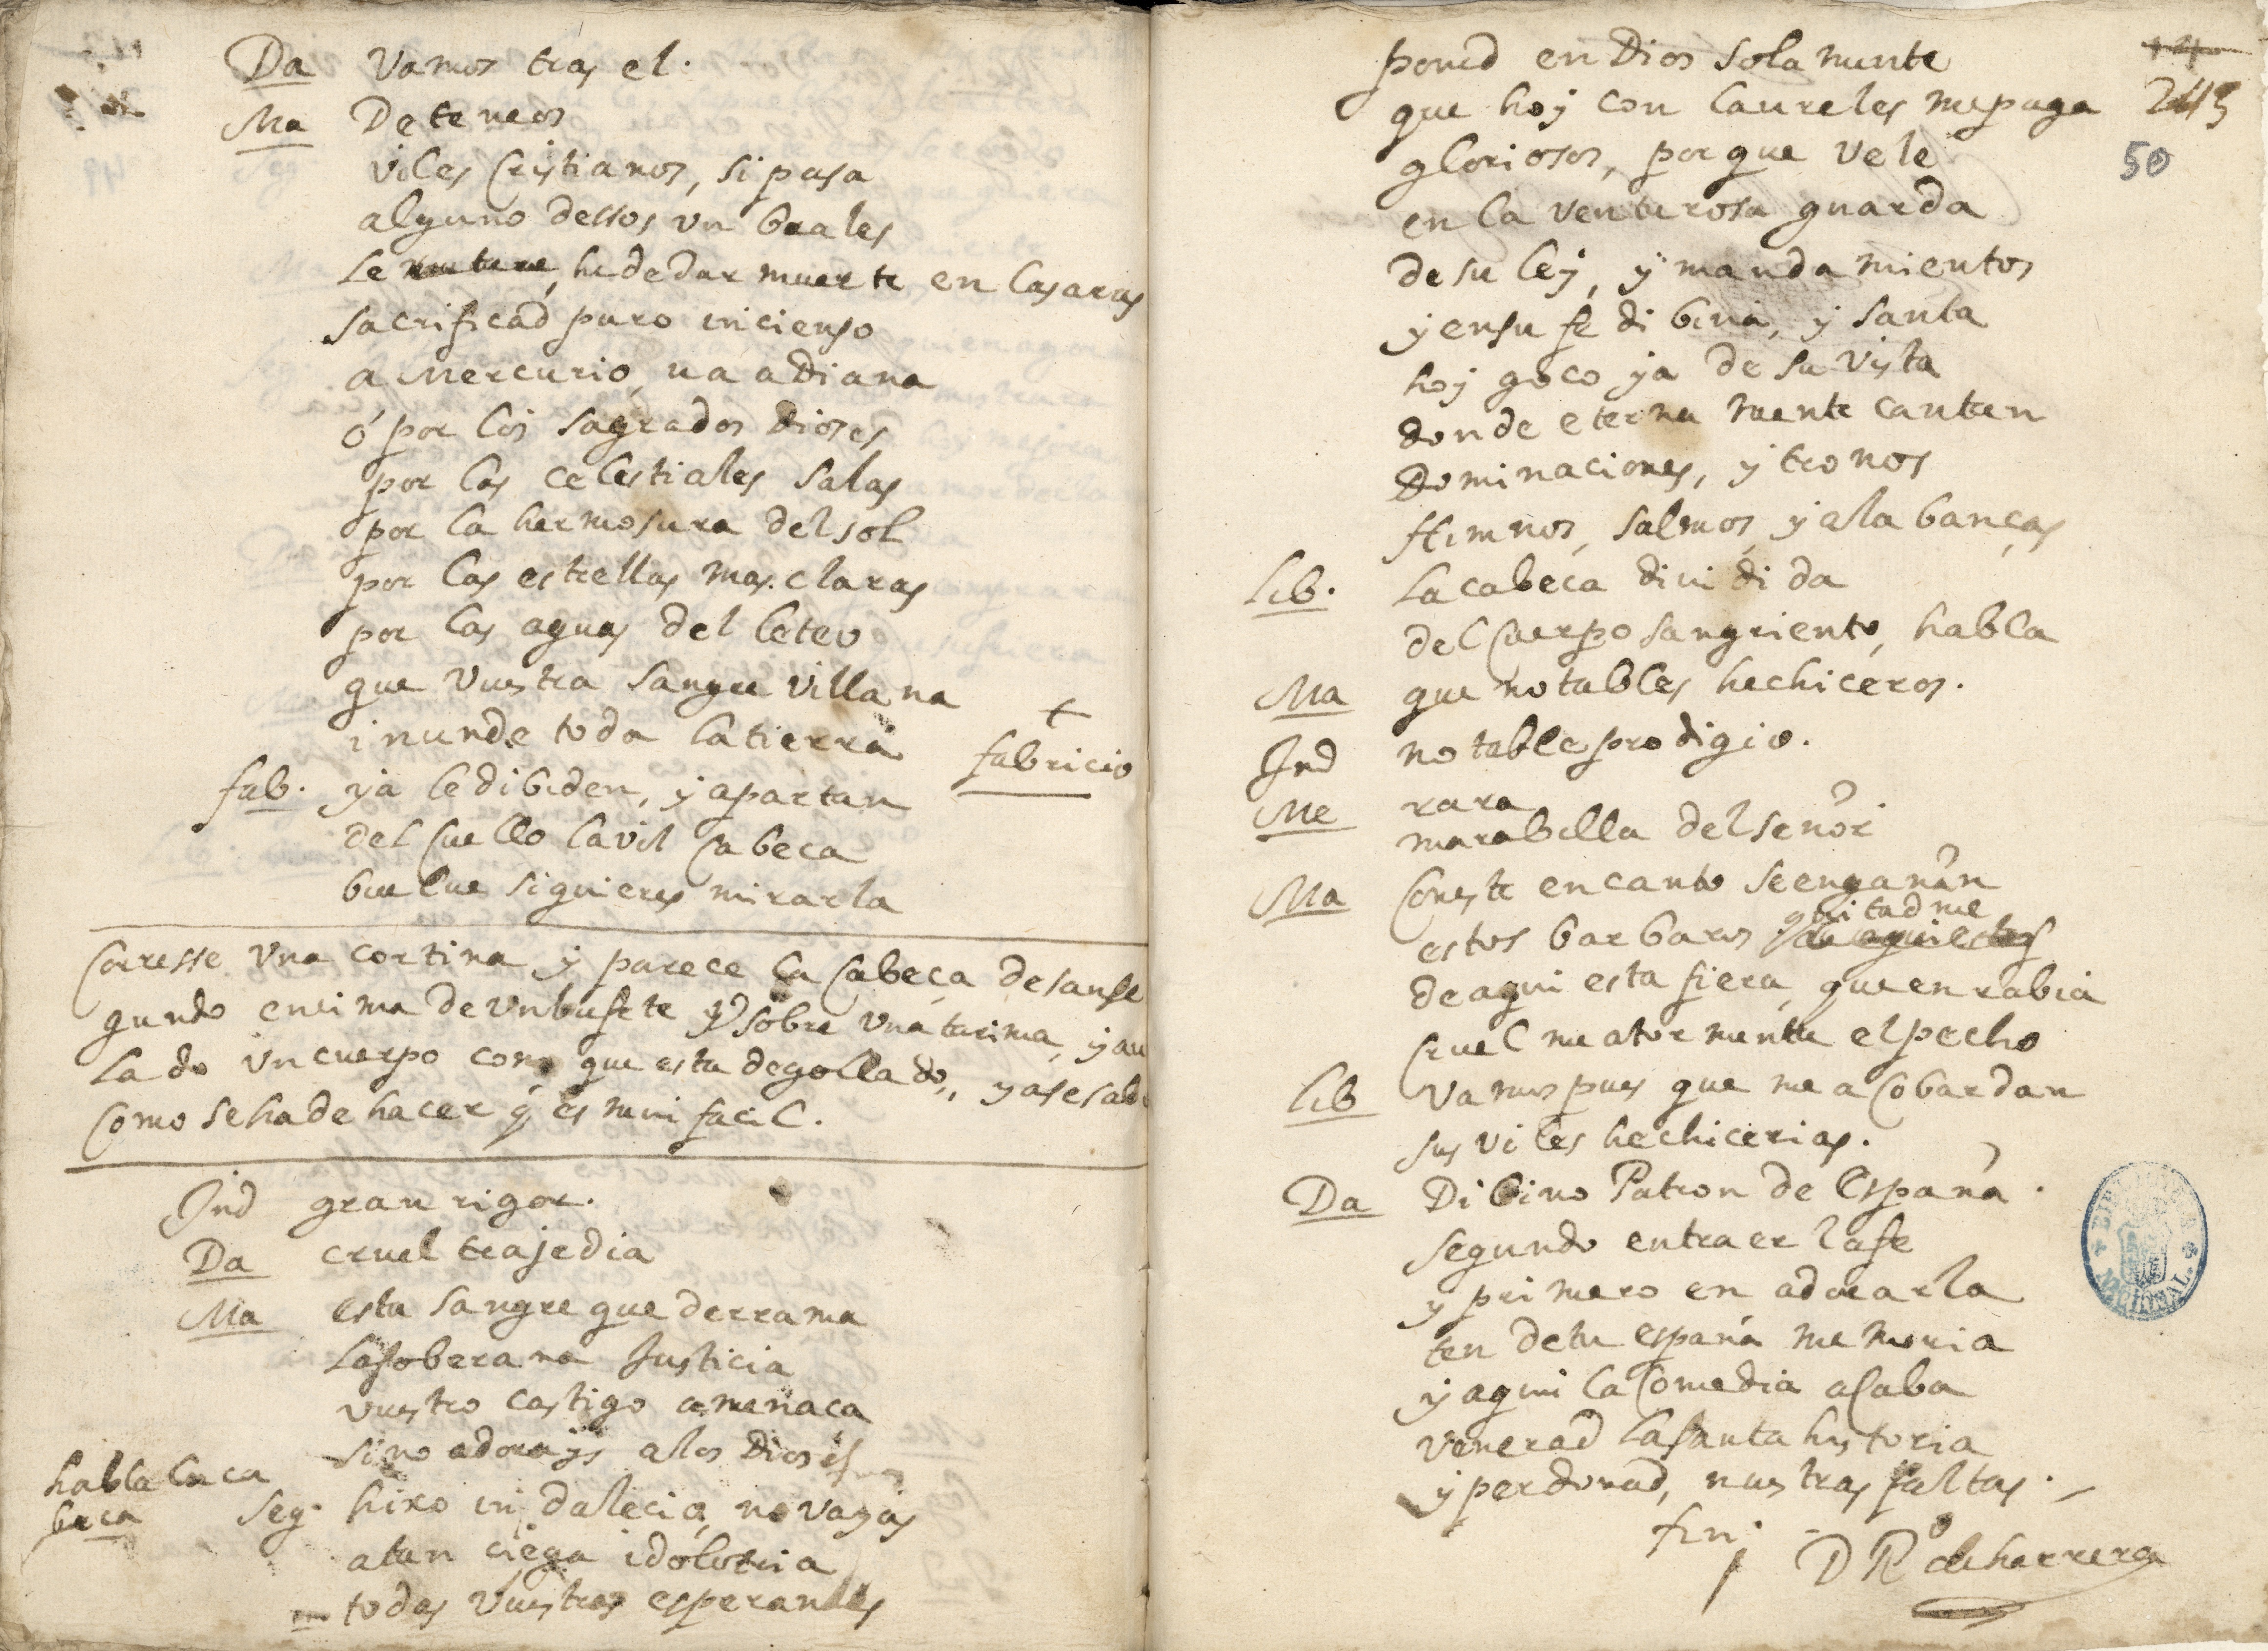 Da Vamos tras el.
Ma Deteneos
viles Cristianos, si pasa
alguno dessos vmbrales
le he de dar muerte en las aras
sacrificad puro incienso
a Mercurio, va a Diana
ó por los sagrados Dioses
por las celestiales salas
por la hermosura del sol
por las estrellas mas claras
por las aguas del leteo
que vuestra sangre villana
inunde toda la tierra
+
fabricio
fab. ya le dibiden, y apartan
del Cuello la vil Cabeca
buelue si quieres mirarla
Corresse vna cortina y parece la Cabeça de san se
gundo encima de vn bufete y sobre vna tarima, y au
lado vn cuerpo como que esta degollado, ya se sabe
Como se ha de hacer q̃ es mui facil.
Ind gran rigor.
Da cruel trajedia
Ma esta sangre que derrama
la soberana Justicia
vuestro castigo amenaca
si no adorays a los Dioses
habla la ca
beca
Seg. hixo indalecio, no vayas
a tan ciega idolotria
todas vuestras esperanças
poned en Dios solamente
que hoy con laureles me paga
gloriosos, porque vele
en la venturosa guarda
de su ley, y mandamientos
y en su fe dibina, y santa
hoy goço ya de su vista
donde eternamente cantan
Dominaciones, y tronos
Himnos, salmos, y alabanças
Lib. La cabeca diuidida
del Cuerpo sangriento, habla
Ma que notables hechiceros.
Ind notable prodigio.
Me rara
marabilla del señor
Ma Con este encanto se engañan
estos barbaros quitadme
de aqui esta fiera, que en rabia
cruel me atormenta el pecho
Lib Vamos pues que me acobardan
sus viles hechicerias.
Da Dibino Patron de España.
segundo en traer la fe
y primero en adorarla
ten de tu españa memoria
y aqui la Comedia acaba
venerad la santa historia
y perdonad, nuestras faltas.
fin.
D R.º de herrera
245
50
BIBLIOTECA NACIONAL